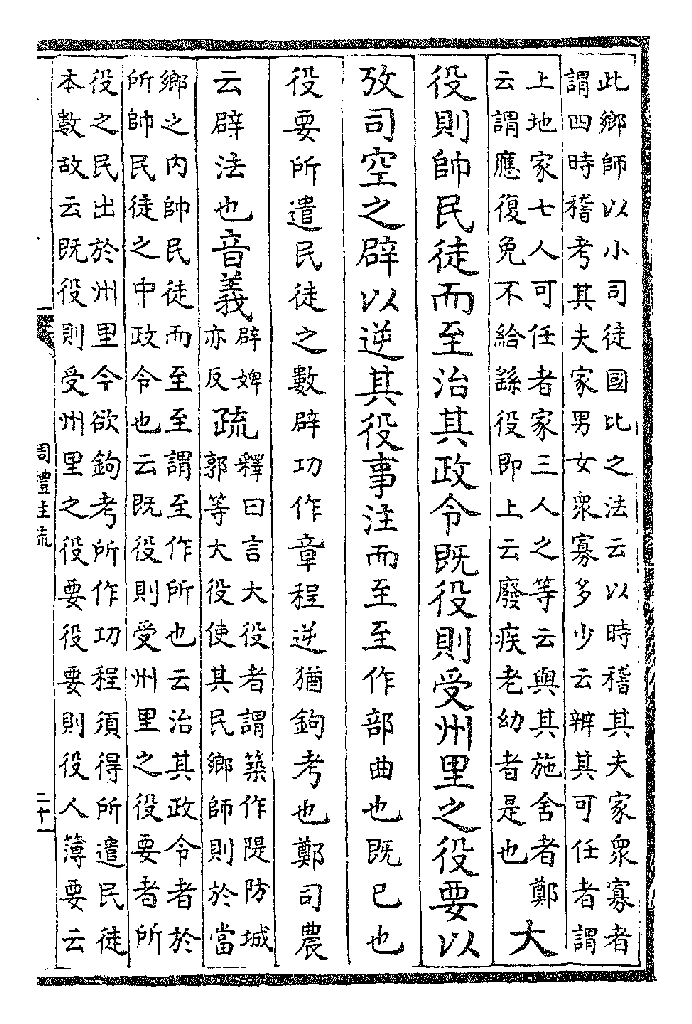 此鄉師以小司徒國比之法云以時稽其夫家衆寡者
謂四時稽考其夫家男女衆寡多少云辨其可任者謂
上地家七人可任者家三人之等云與其施舍者鄭
云謂應復免不給繇役即上云廢疾老幼者是也
大
役則帥民徒而至治其政令既役則受州里之役要以
攷司空之辟以逆其役事注而至至作部曲也既已也
役要所遣民徒之數辟功作章程逆猶鉤考也鄭司農
云辟法也音義
辟婢
亦反
疏
釋曰言大役者謂築作隄防城
郭等大役使其民鄉師則於當
鄉之內帥民徒而至至謂至作所也云治其政令者於
所帥民徒之中政令也云既役則受州里之役要者所
役之民出於州里今欲鉤考所作功程須得所遣民徒
本數故云既役則受州里之役要役要則役人簿要云
周禮注疏
二十一